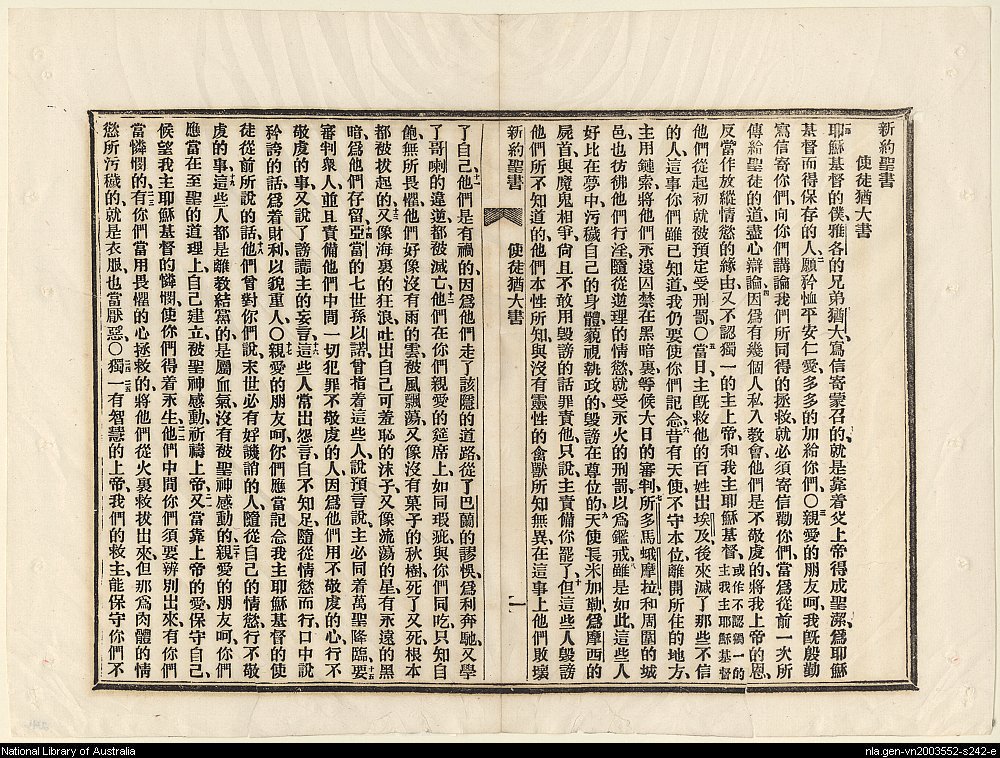 新約聖書
使徒猶大書
耶穌基督的僕、雅各的兄弟猶大、寫信寄蒙召的、就是靠着父上帝得成聖潔、爲耶穌
基督而得保存的人、二願矜恤平安仁愛、多多的加給你們〇三親愛的朋友呵、我旣殷勤
寫信寄你們、向你們講論我們所同得的拯救、就必須寄信勸你們、當爲從前一次所
傳給聖徒的道、盡心辯論、四因爲有幾個人私入敎會、他們是不敬虔的、將我上帝的恩、
反當作放縱情慾的緣由、又不認獨一的主上帝、和我主耶穌基督、或作不認獨一的主我主耶穌基督
他們從起初就被預定受刑罰〇五當日主旣救他的百姓出埃及、後來滅了那些不信
的人、這事你們雖已知道、我仍要使你們記念、六昔有天使不守本位、離開所住的地方、
主用鏈索將他們永遠囚禁在黑暗裏、等候大日的審判、七所多馬蛾摩拉和周圍的城
邑、也彷彿他們行淫、隨從逆理的情慾、就受永火的刑罰、以爲鑑戒、八雖是如此、這些人
好比在夢中、污穢自己的身體、藐視執政的、毀謗在尊位的、九天使長米加勒、爲摩西的
屍首、與魔鬼相爭、尙且不敢用毀謗的話罪責他、只說、主責備你罷了、十但這些人毀謗
他們所不知道的、他們本性所知、與沒有靈性的禽獸所知無異、在這事上他們敗壞
新約聖書 使徒猶大書 一
了自己、十一他們是有禍的、因爲他們走了該隱的道路、從了巴蘭的謬悞、爲利奔馳、又學
了哥喇的違逆、都被滅亡、十二他們在你們親愛的筵席上、如同瑕疵、與你們同吃、只知自
飽、無所畏懼、他們好像沒有雨的雲、被風飄蕩、又像沒有菓子的秋樹、死了又死、根本
都被拔起的、十三又像海裏的狂浪、吐出自己可羞恥的沫子、又像流蕩的星、有永遠的黑
暗、爲他們存留、十四亞當的七世孫以諾、曾指着這些人說預言說、主必同着萬聖降臨、十五要
審判衆人、並且責備他們中間一切犯罪不敬虔的人、因爲他們用不敬虔的心、行不
敬虔的事、又說了謗讟主的妄言、十六這些人常出怨言、自不知足、隨從情慾而行、口中說
矜誇的話、爲着財利、以貌重人、〇十七親愛的朋友呵、你們應當記念我主耶穌基督的使
徒從前所說的話、十八他們曾對你們說、末世必有好譏誚的人、隨從自己的情慾、行不敬
虔的事、十九這些人都是離敎結黨的、是屬血氣、沒有被聖神感動的、二十親愛的朋友呵、你們
應當在至聖的道理上、自己建立、被聖神感動、祈禱上帝、二一又當靠上帝的愛、保守自己、
候望我主耶穌基督的憐憫、使你們得着永生、二二他們中間你們須要辨別出來、有你們
當憐憫的、二三有你們當用畏懼的心拯救的、將他們從火裏救拔出來、但那爲肉體的情
慾所污穢的、就是衣服也當厭惡、〇二四二五獨一有智慧的上帝、我們的救主、能保守你們不
National Library of Australia
nla.gen-vn2003552-s242-e